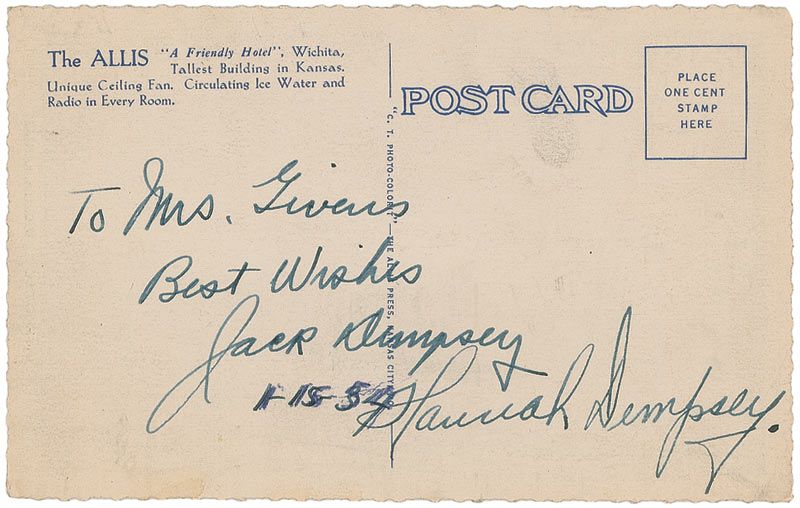 The ALLIS "A Friendly Hotel", Wichita,
Tallest Building in Kansas.
Unique Ceiling Fan. Circulating Ice Water and
Radio in Every Room.
POST CARD
PLACE
ONE CENT
STAMP
HERE
"C. T. PHOTO-COLORIT"—THE ALLIS PRESS, KANSAS CITY
To Mrs. Givens
Best Wishes
Jack Dempsey
1-15-54
Hannah Dempsey.